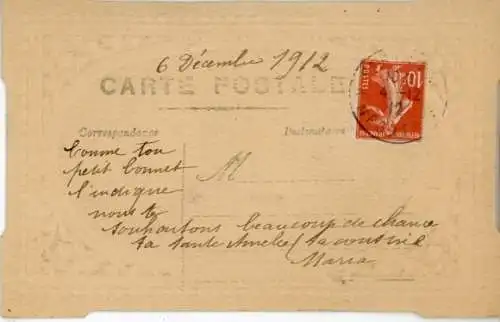 6 Décembre 1912
CARTE POSTALE
Correspondance
Destinataire
M
Comme ton
petit bonnet
l'indique
nous te
souhaitons beaucoup de chance
ta tante Amelie / ta cousine
Maria
10c
POSTES